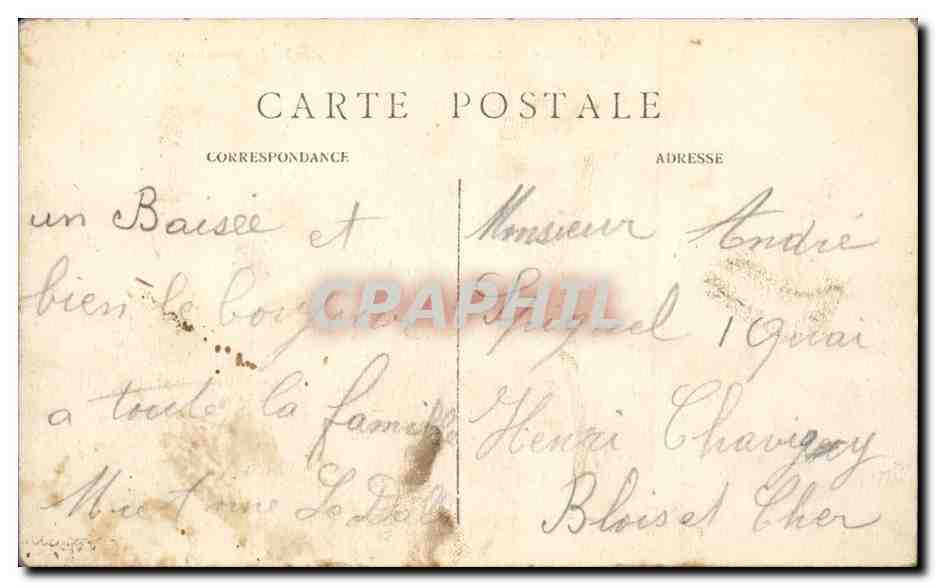 CARTE POSTALE
CORRESPONDANCE
ADRESSE
un Baisée et
bien le
a toute la famille
Le
Monsieur André
1 Quai
Henri Chavigny
Blois et Cher
CPAPHIL